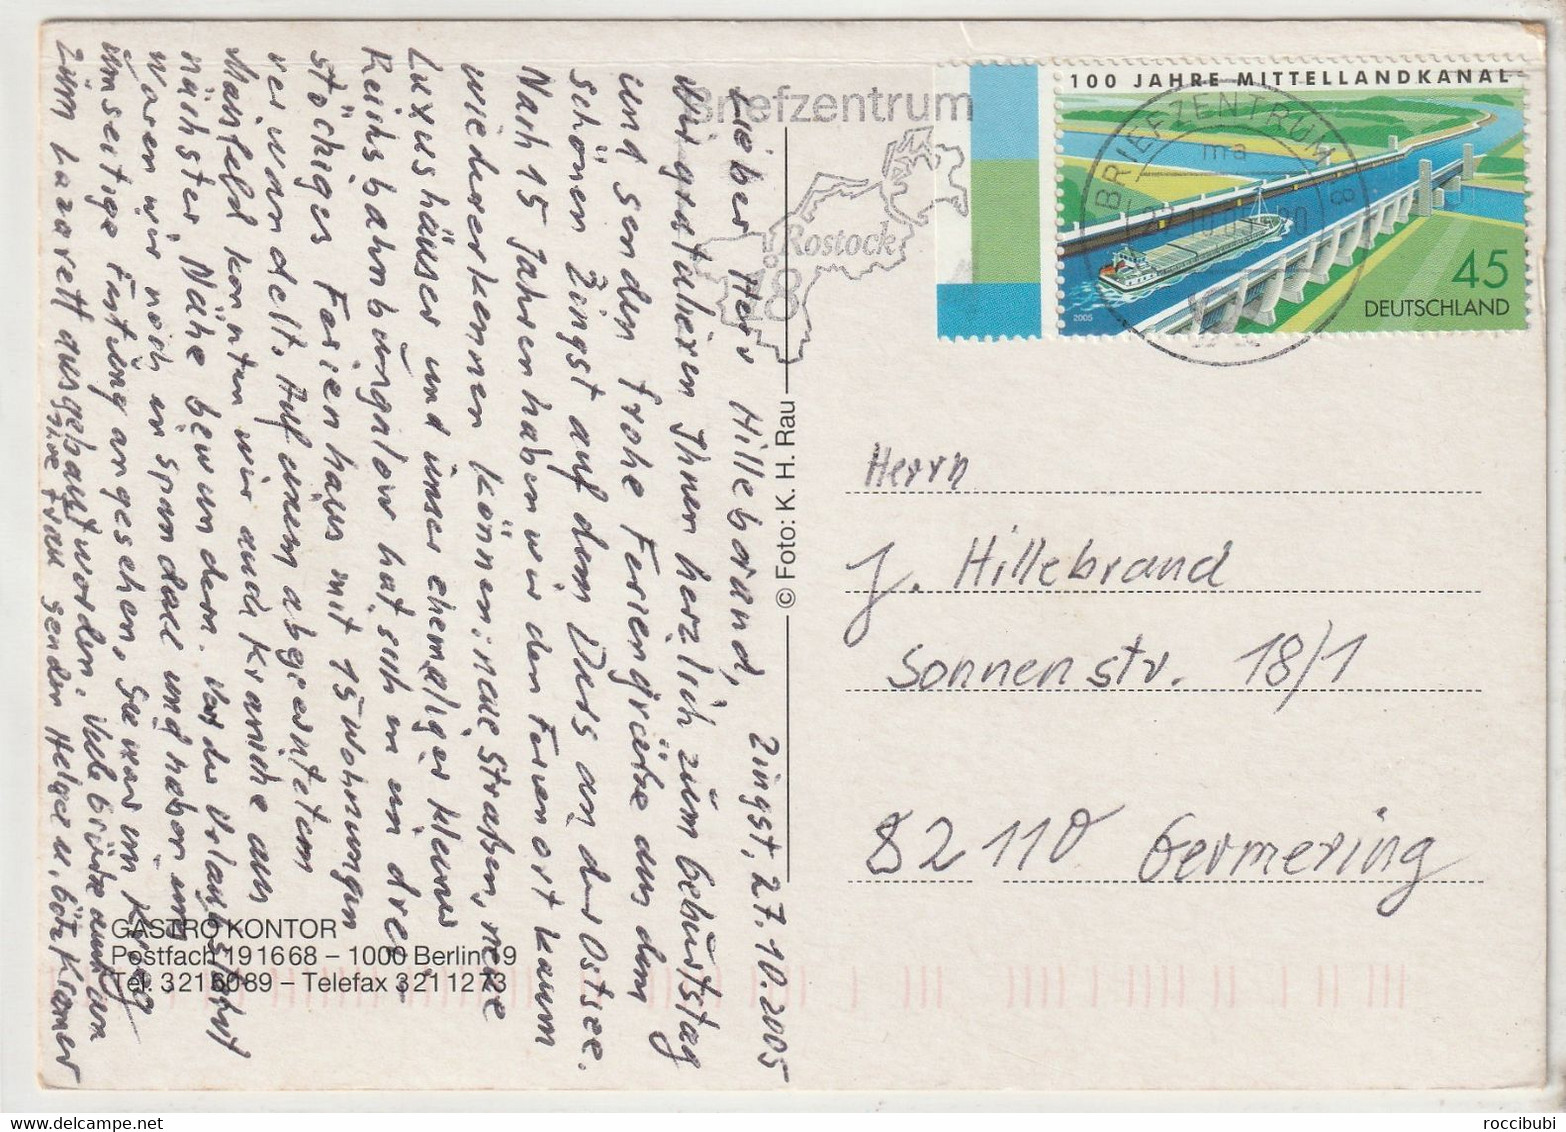 Lieber Herr Hillebrand, Zingst, 27.10.2005
wir gratulieren Ihnen herzlich zum Geburtstag
und senden frohe Feriengrüße aus dem
schönen Zingst auf dem Dars an der Ostsee.
Nach 15 Jahren haben wir den Ferienort kaum
wiedererkennen können: neue Straßen, neue
Luxushäuser und unser ehemaliger kleiner
Reichsbahnbungalow hat sich in ein drei-
stöckiges Ferienhaus mit 15 Wohnungen
verwandelt. Auf einem abgeernteten
Maisfeld konnten wir auch Kraniche aus
nächster Nähe bewundern. Vor der Urlaubsfahrt
waren wir noch in Spandau und haben im
umseitige Festung angesehen. Sie war im Krieg
zum Lazarett ausgebaut worden. Viele Grüße auch an
Ihre Frau senden Helga u. Götz Kramer
Briefzentrum
18
Rostock
© Foto: K. H. Rau
GASTRO KONTOR
Postfach 191668 – 1000 Berlin 19
Tel. 3216089 – Telefax 3211273
100 JAHRE MITTELLANDKANAL
BRIEFZENTRUM 18
ma
45
DEUTSCHLAND
2005
Herrn
J. Hillebrand
Sonnenstr. 18/1
82110 Germering
roccibubi